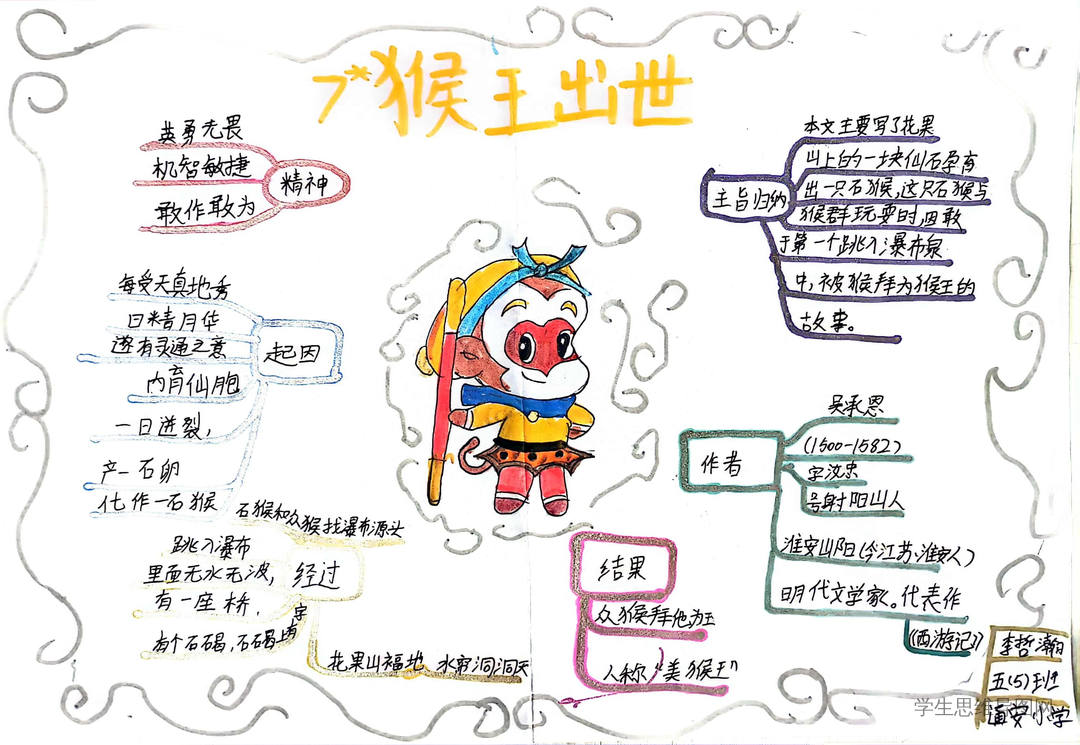 7*猴王出世
精神
英勇无畏
机智敏捷
敢作敢为
起因
每受天真地秀
日精月华
遂有灵通之意
内育仙胞
一日迸裂,
产一石卵
化作一石猴
经过
石猴和众猴找瀑布源头
跳入瀑布
里面无水无波,
有一座桥,
有个石碣,石碣上有字
花果山福地 水帘洞洞天
主旨归纳
本文主要写了花果
山上的一块仙石孕育
出一只石猴,这只石猴与
猴群玩耍时,因敢
于第一个跳入瀑布泉
中,被猴拜为猴王的
故事。
作者
吴承恩
(1500-1582)
字汝忠
号射阳山人
淮安山阳(今江苏、淮安人)
明代文学家。代表作
《西游记》
结果
众猴拜他为王
人称“美猴王”
李哲瀚
五(5)班
通安小学
学生思维导图网